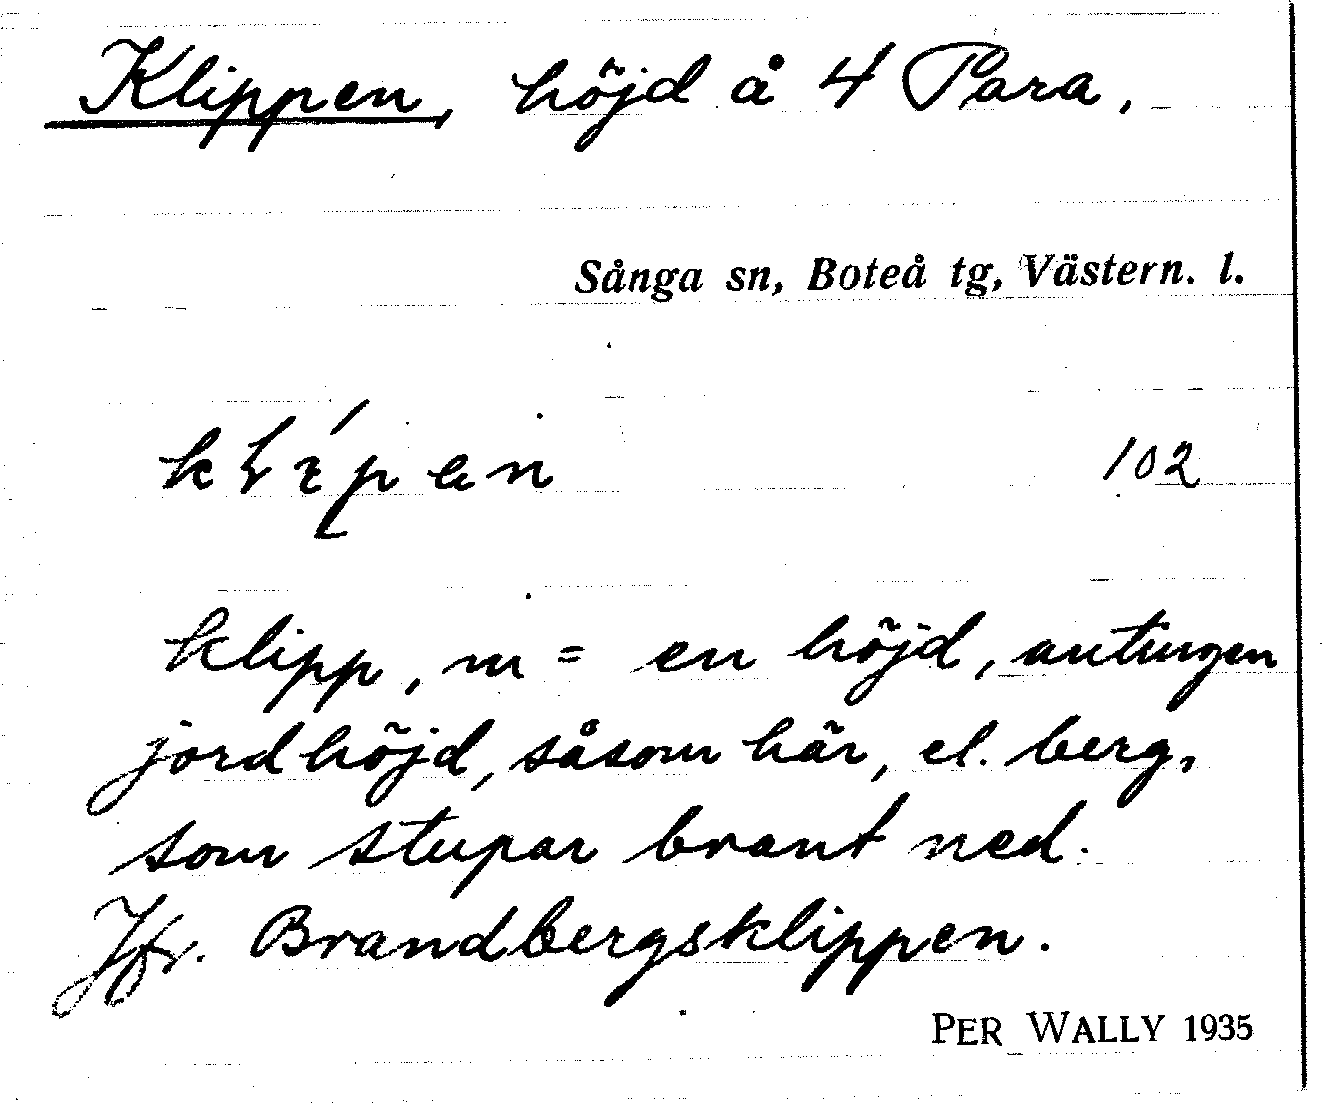 Klippen, höjd å 4 Para.
Sånga sn, Boteå tg, Västern. l.
102
klipp, m = en höjd, antingen
jordhöjd, såsom här, el. berg,
som stupar brant ned.
Jfr. Brandbergsklippen.
PER WALLY 1935